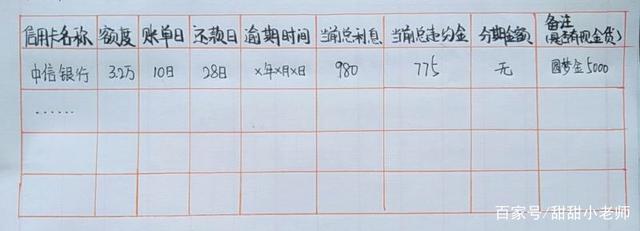 信用卡名称 额度 账单日 还款日 逾期时间 当前总利息 当前总违约金 分期金额 备注
(是否有现金贷)
中信银行 3.2万 10日 28日 x年x月x日 980 775 无 圆梦金5000
……
百家号/甜甜小老师